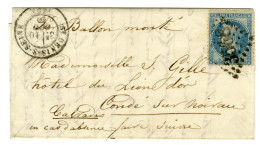 Ballon monté
Mademoiselle S. Gille
hotel du Lion d'or
Condé sur Noireau
Calvados
en cas d'absence faire suivre